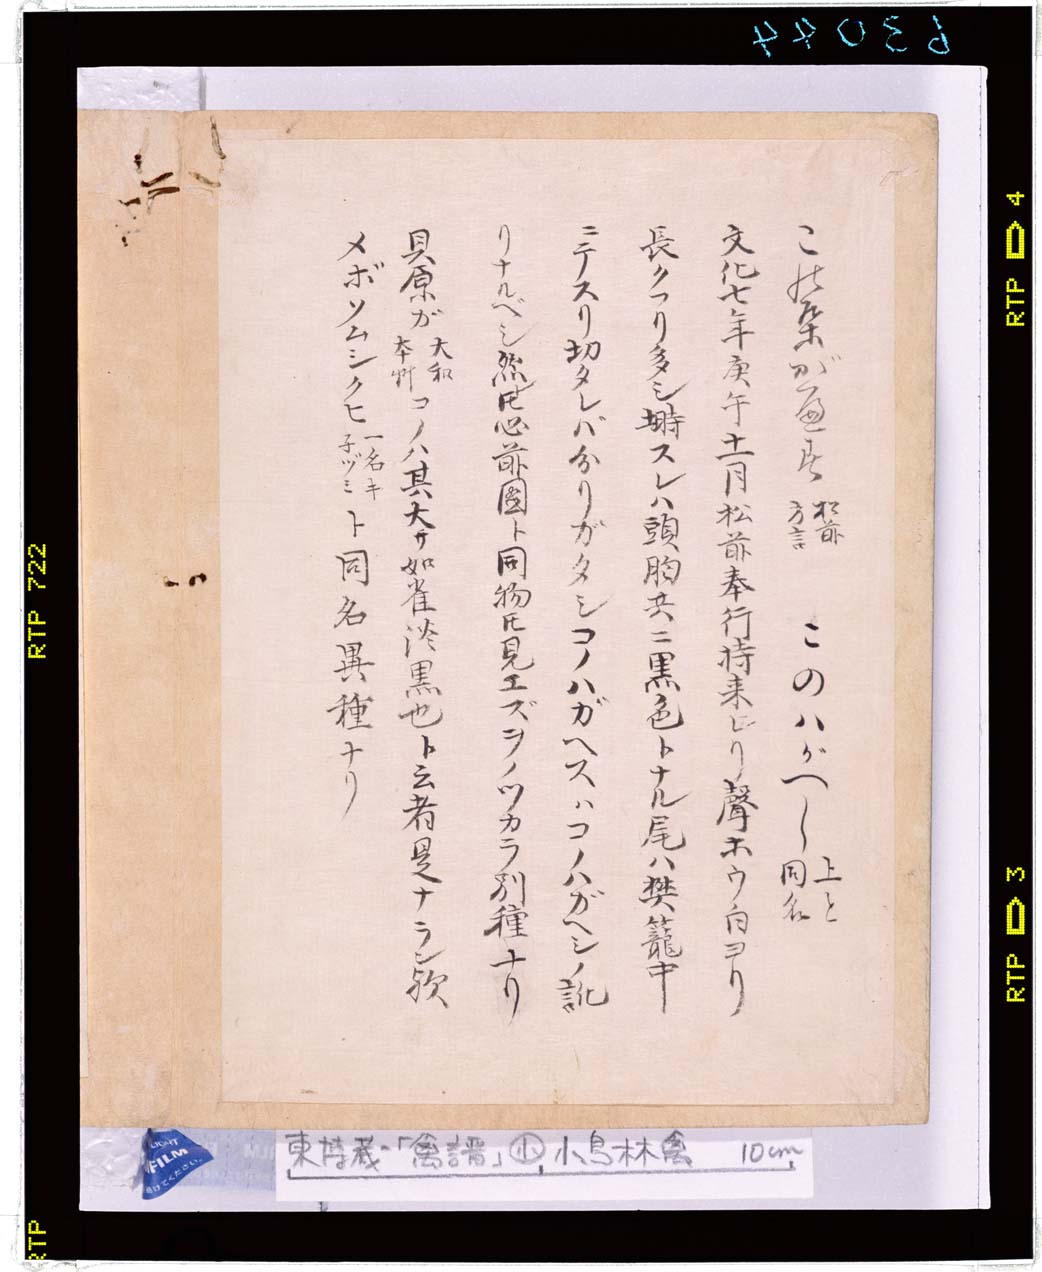 この葉がへす 松前方言 このはがへし 上と同名
文化七年庚午十一月松前奉行持来ヒリ聲ホウ白ヨリ
長クフリ多シ塒スレハ頭胸共ニ黒色トナル尾ハ樊籠中
ニテスリ切タレバ分リガタシコノハガヘスハコノハガヘシノ訛
リナルベシ然氏必前圖ト同物氏見エズヲノツカラ別種ナリ
貝原ガ大和本艸コノハ其大サ如雀淡黒也ト云者是ナラン歟
メボソムシクヒ一名キ子ヅミト同名異種ナリ
東博蔵・「禽譜」小 小鳥林禽 10cm
63044
RTP 722
RTP
RTP 4
RTP 3
LIGHT
FILM